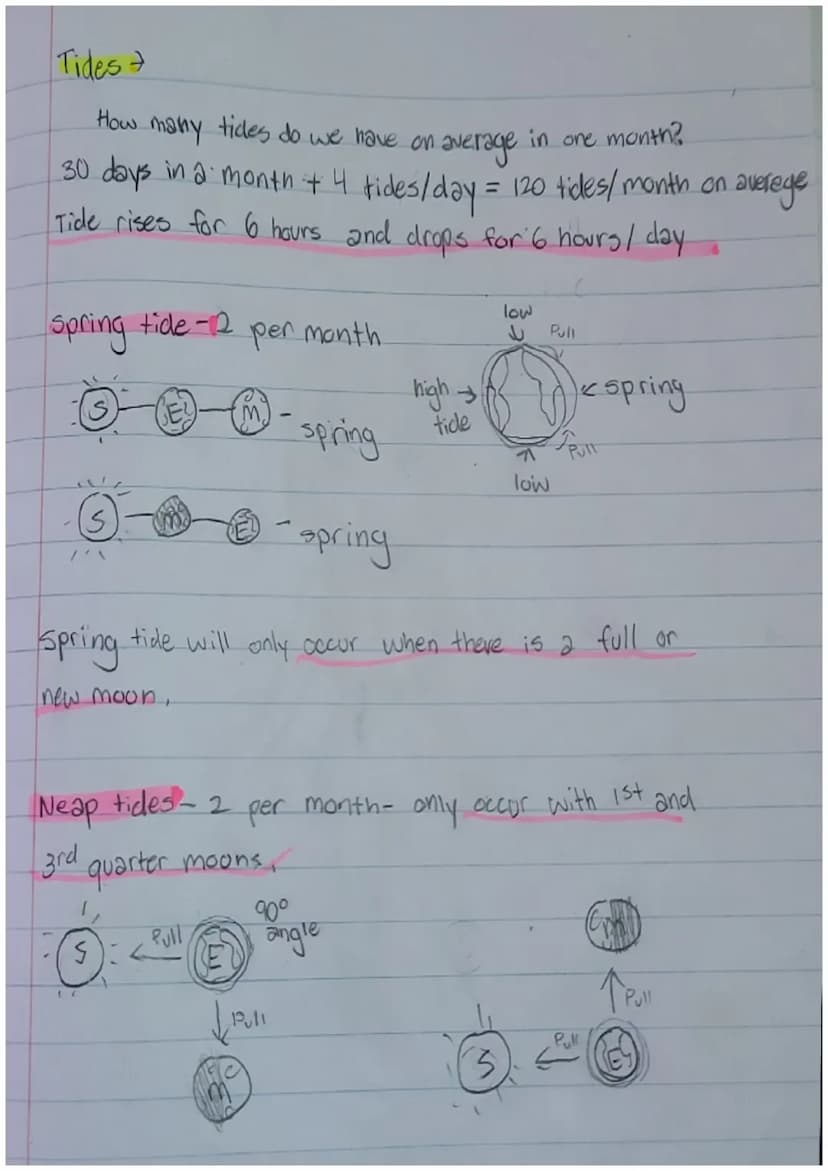 Tides →
How many tides do we have on average in one month?
30 days in a month + 4 tides/day = 120 tides/month on averege
Tide rises for 6 hours and drops for 6 hours/day.
Spring tide - 2 per month
low
Pull
high →
tide
< spring
Pull
low
S E M - spring
S M E - spring
Spring tide will only occur when there is a full or
new moon.
Neap tides - 2 per month - only occur with 1st and
3rd quarter moons.
S Pull E 90°
angle
Pull
M
M
Pull
S Pull E